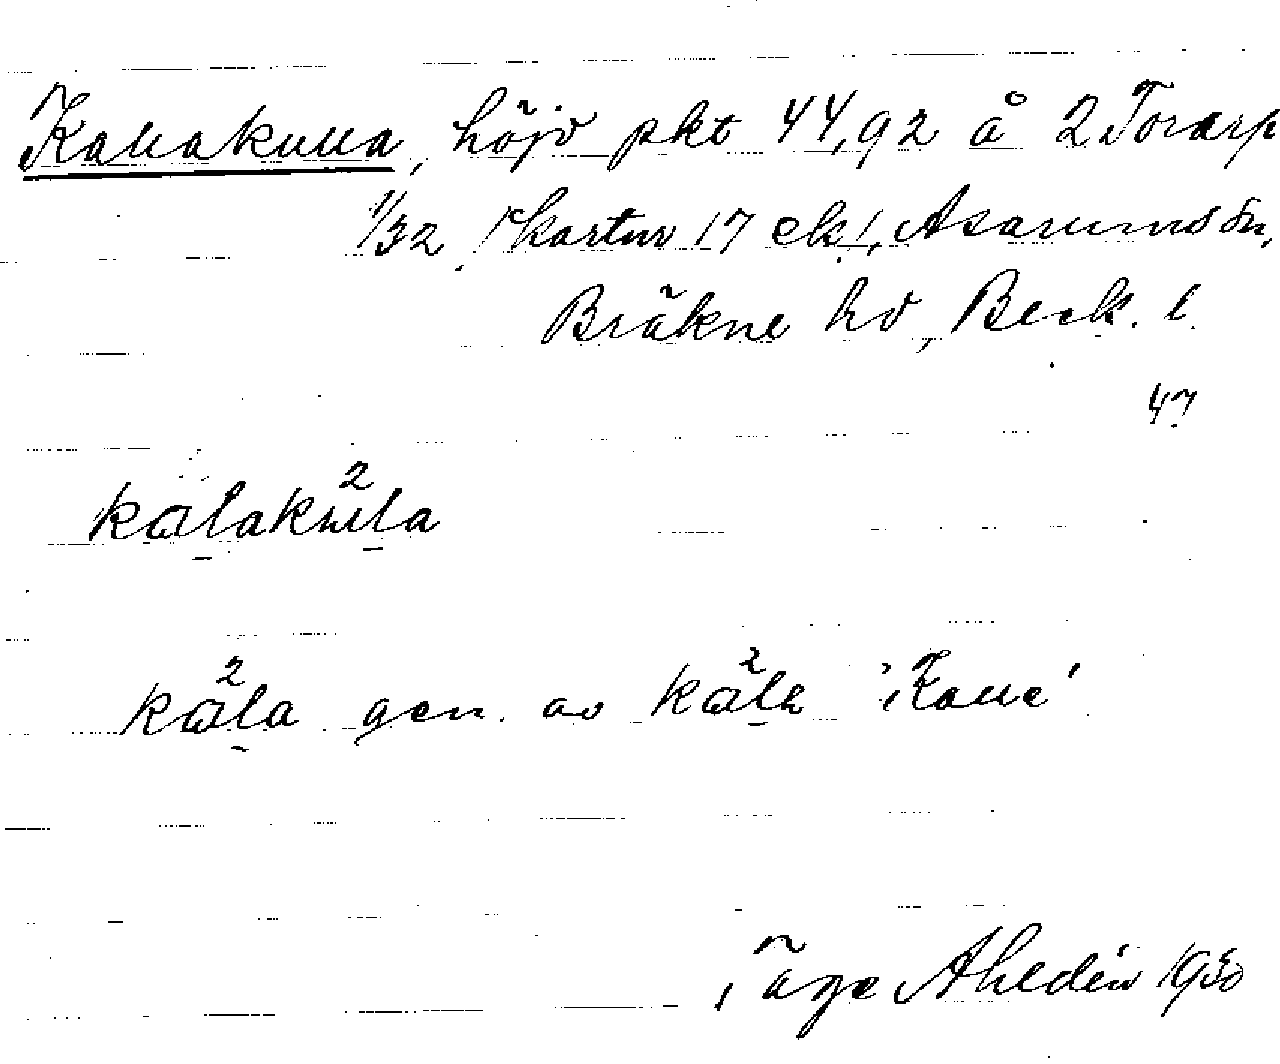 Kallakulla, höjd pkt 44,92 å 2 Torarp
1/32, /kartur 17 ek/, Asarums sn,
Bräkne hd, Blek. l.
47
kalakula 2
2 kala gen. av kalə 2 'Kalle'
Tåge Ahldén 1930